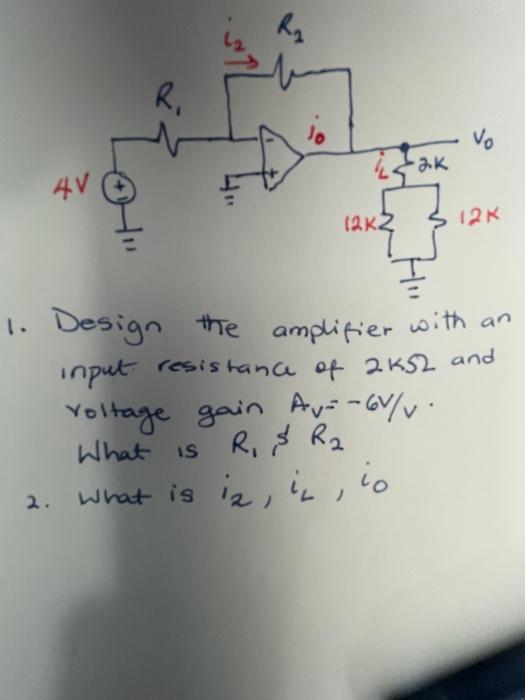 i2 R2
R1
io
Vo
4V
iL 2K
12K 12K
1. Design the amplifier with an
input resistance of 2KΩ and
voltage gain Av=-6V/V.
What is R1 & R2
2. What is i2, iL, io